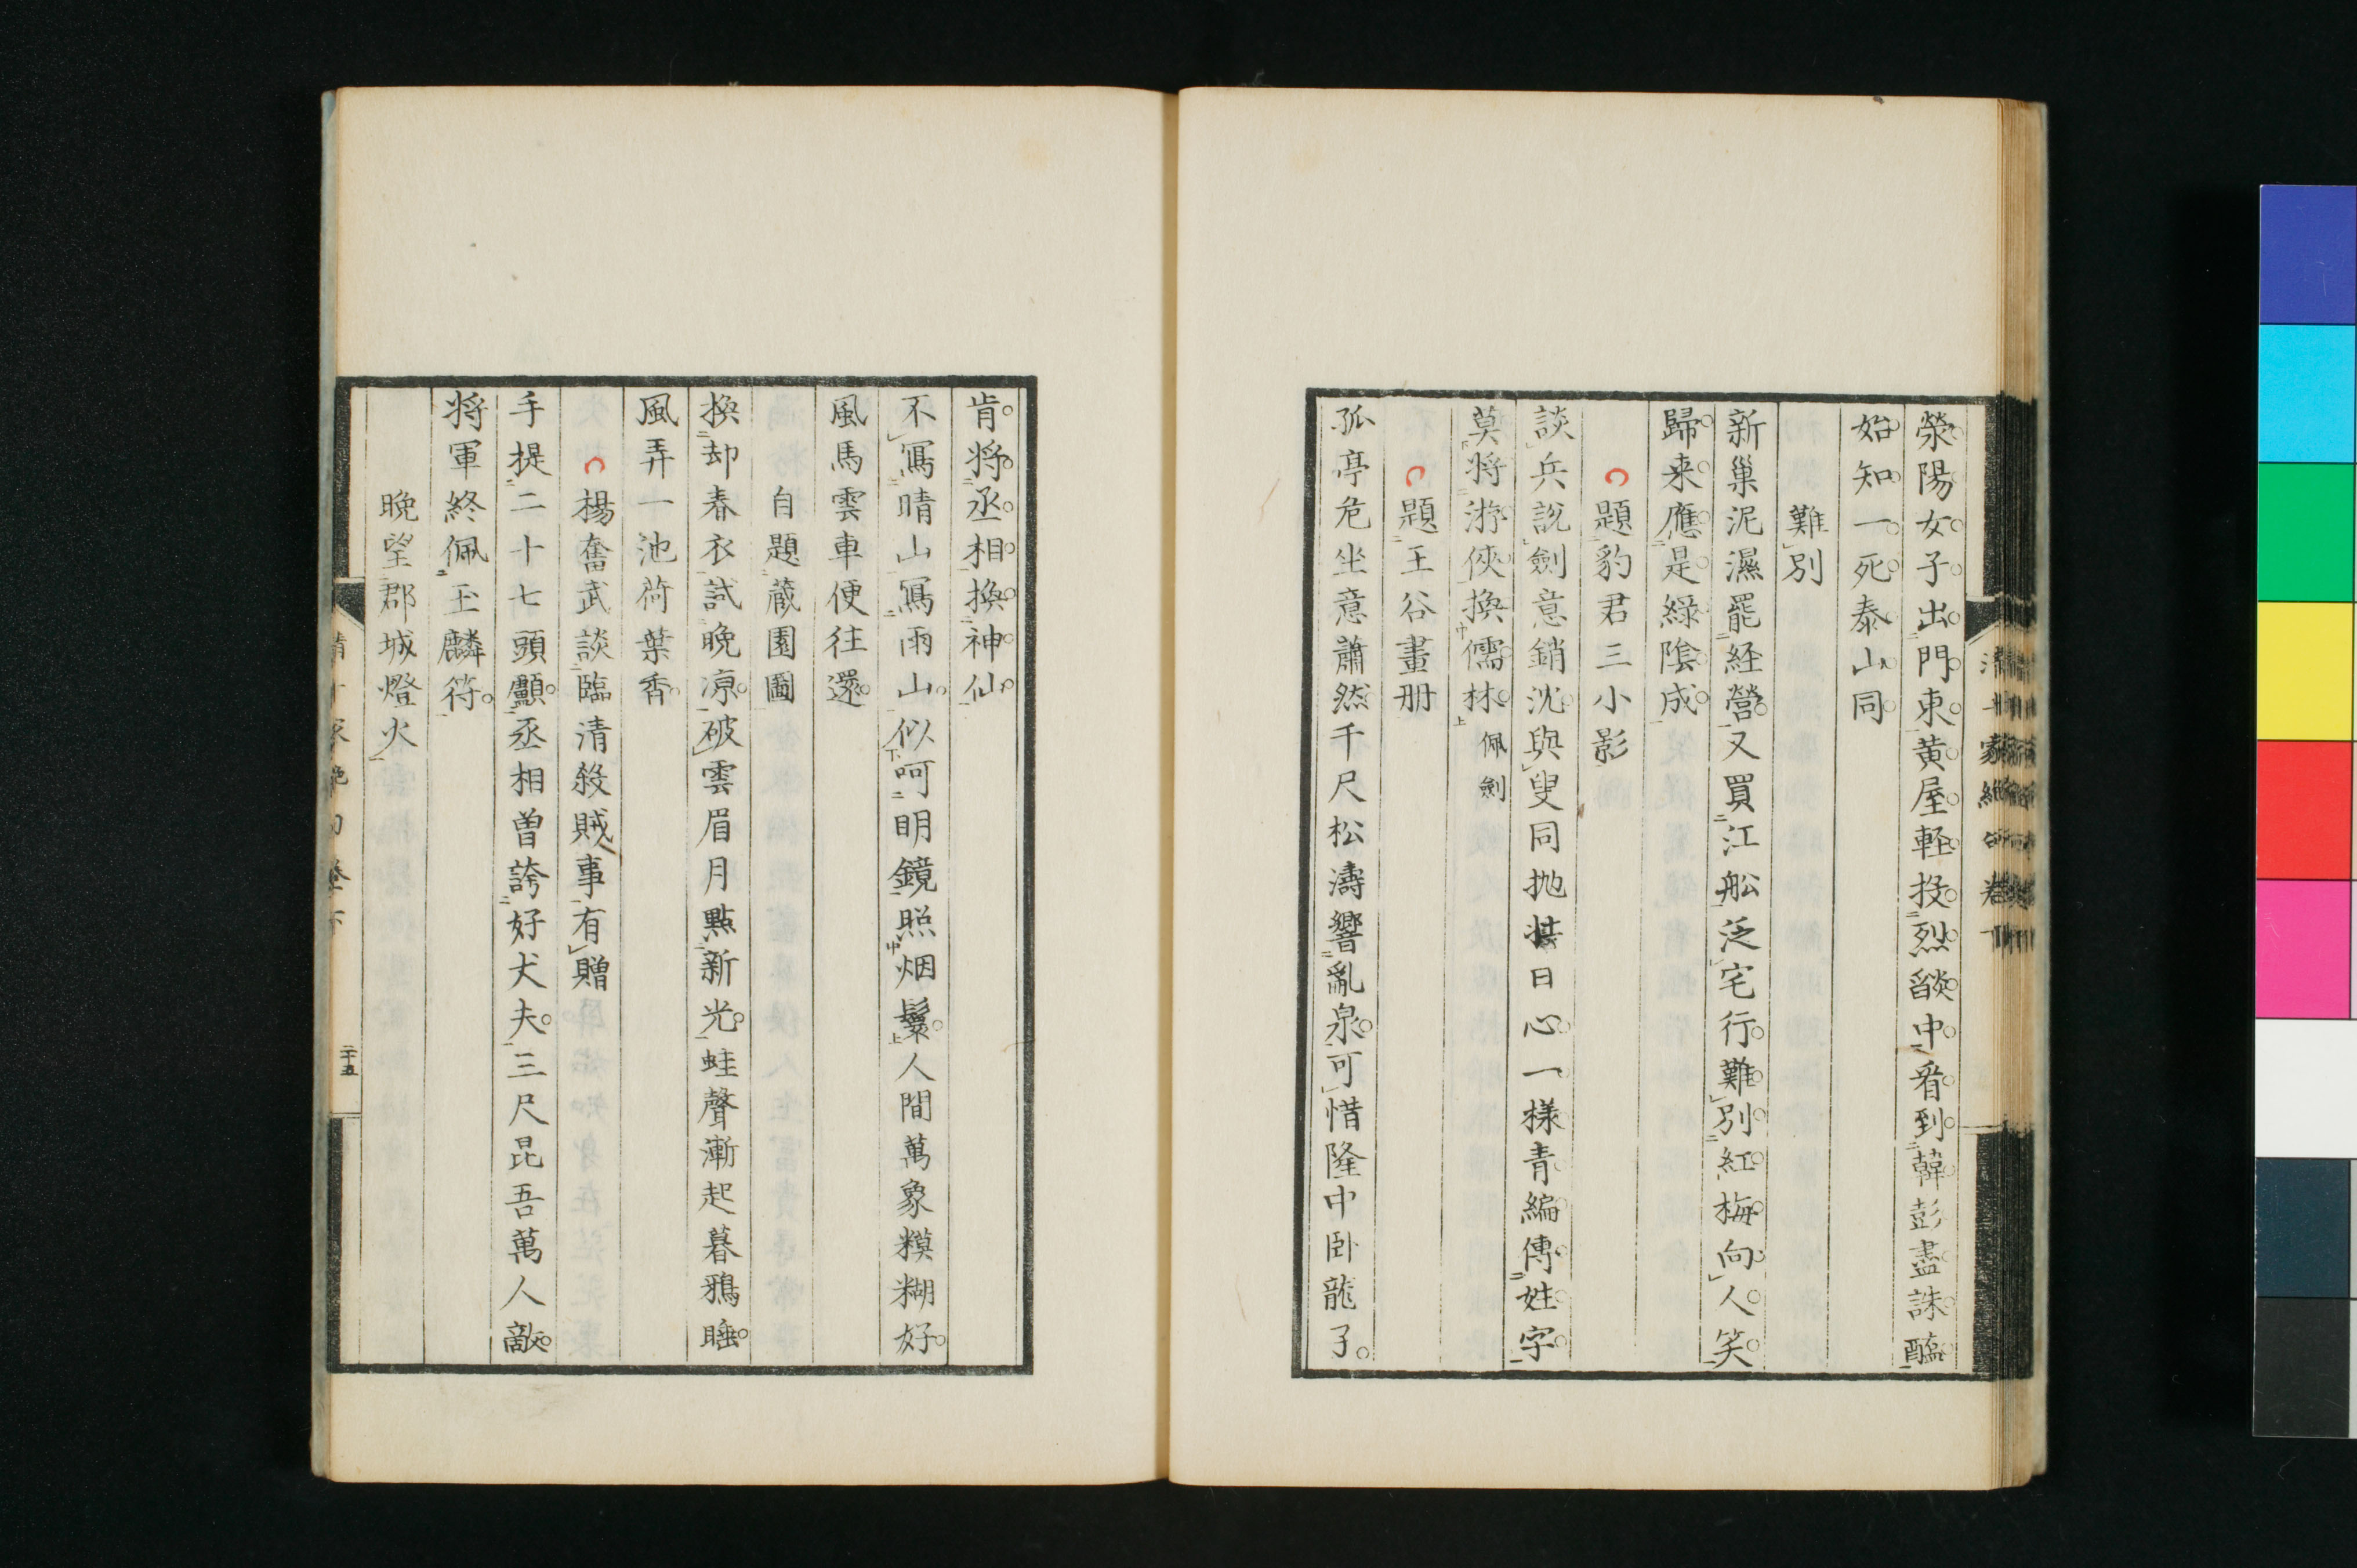 滎陽女子出門東黄屋軽投烈燄中看到韓彭盡誅醢
始知一死泰山同
難別
新巢泥濕罷経營又買江舩泛宅行難別紅梅向人笑
歸来應是綠陰成
題豹君三小影
談兵說劍意銷沈與叟同抛日心一樣青編傳姓字
莫將游俠換儒林佩劍
題王谷畫册
孤亭危坐意蕭然千尺松濤響亂泉可惜隆中卧龍子
肯將丞相換神仙
不寫晴山寫雨山似呵明鏡照烟鬟人間萬象糢糊好
風馬雲車便往還
自題藏園圖
換却春衣試晩凉破雲眉月點新光蛙聲漸起暮鴉睡
風弄一池荷葉香
楊奮武談臨清殺賊事有贈
手提二十七頭顱丞相曽誇好犬夫三尺昆吾萬人敵
將軍終佩玉麟符
晩望郡城燈火
二十五